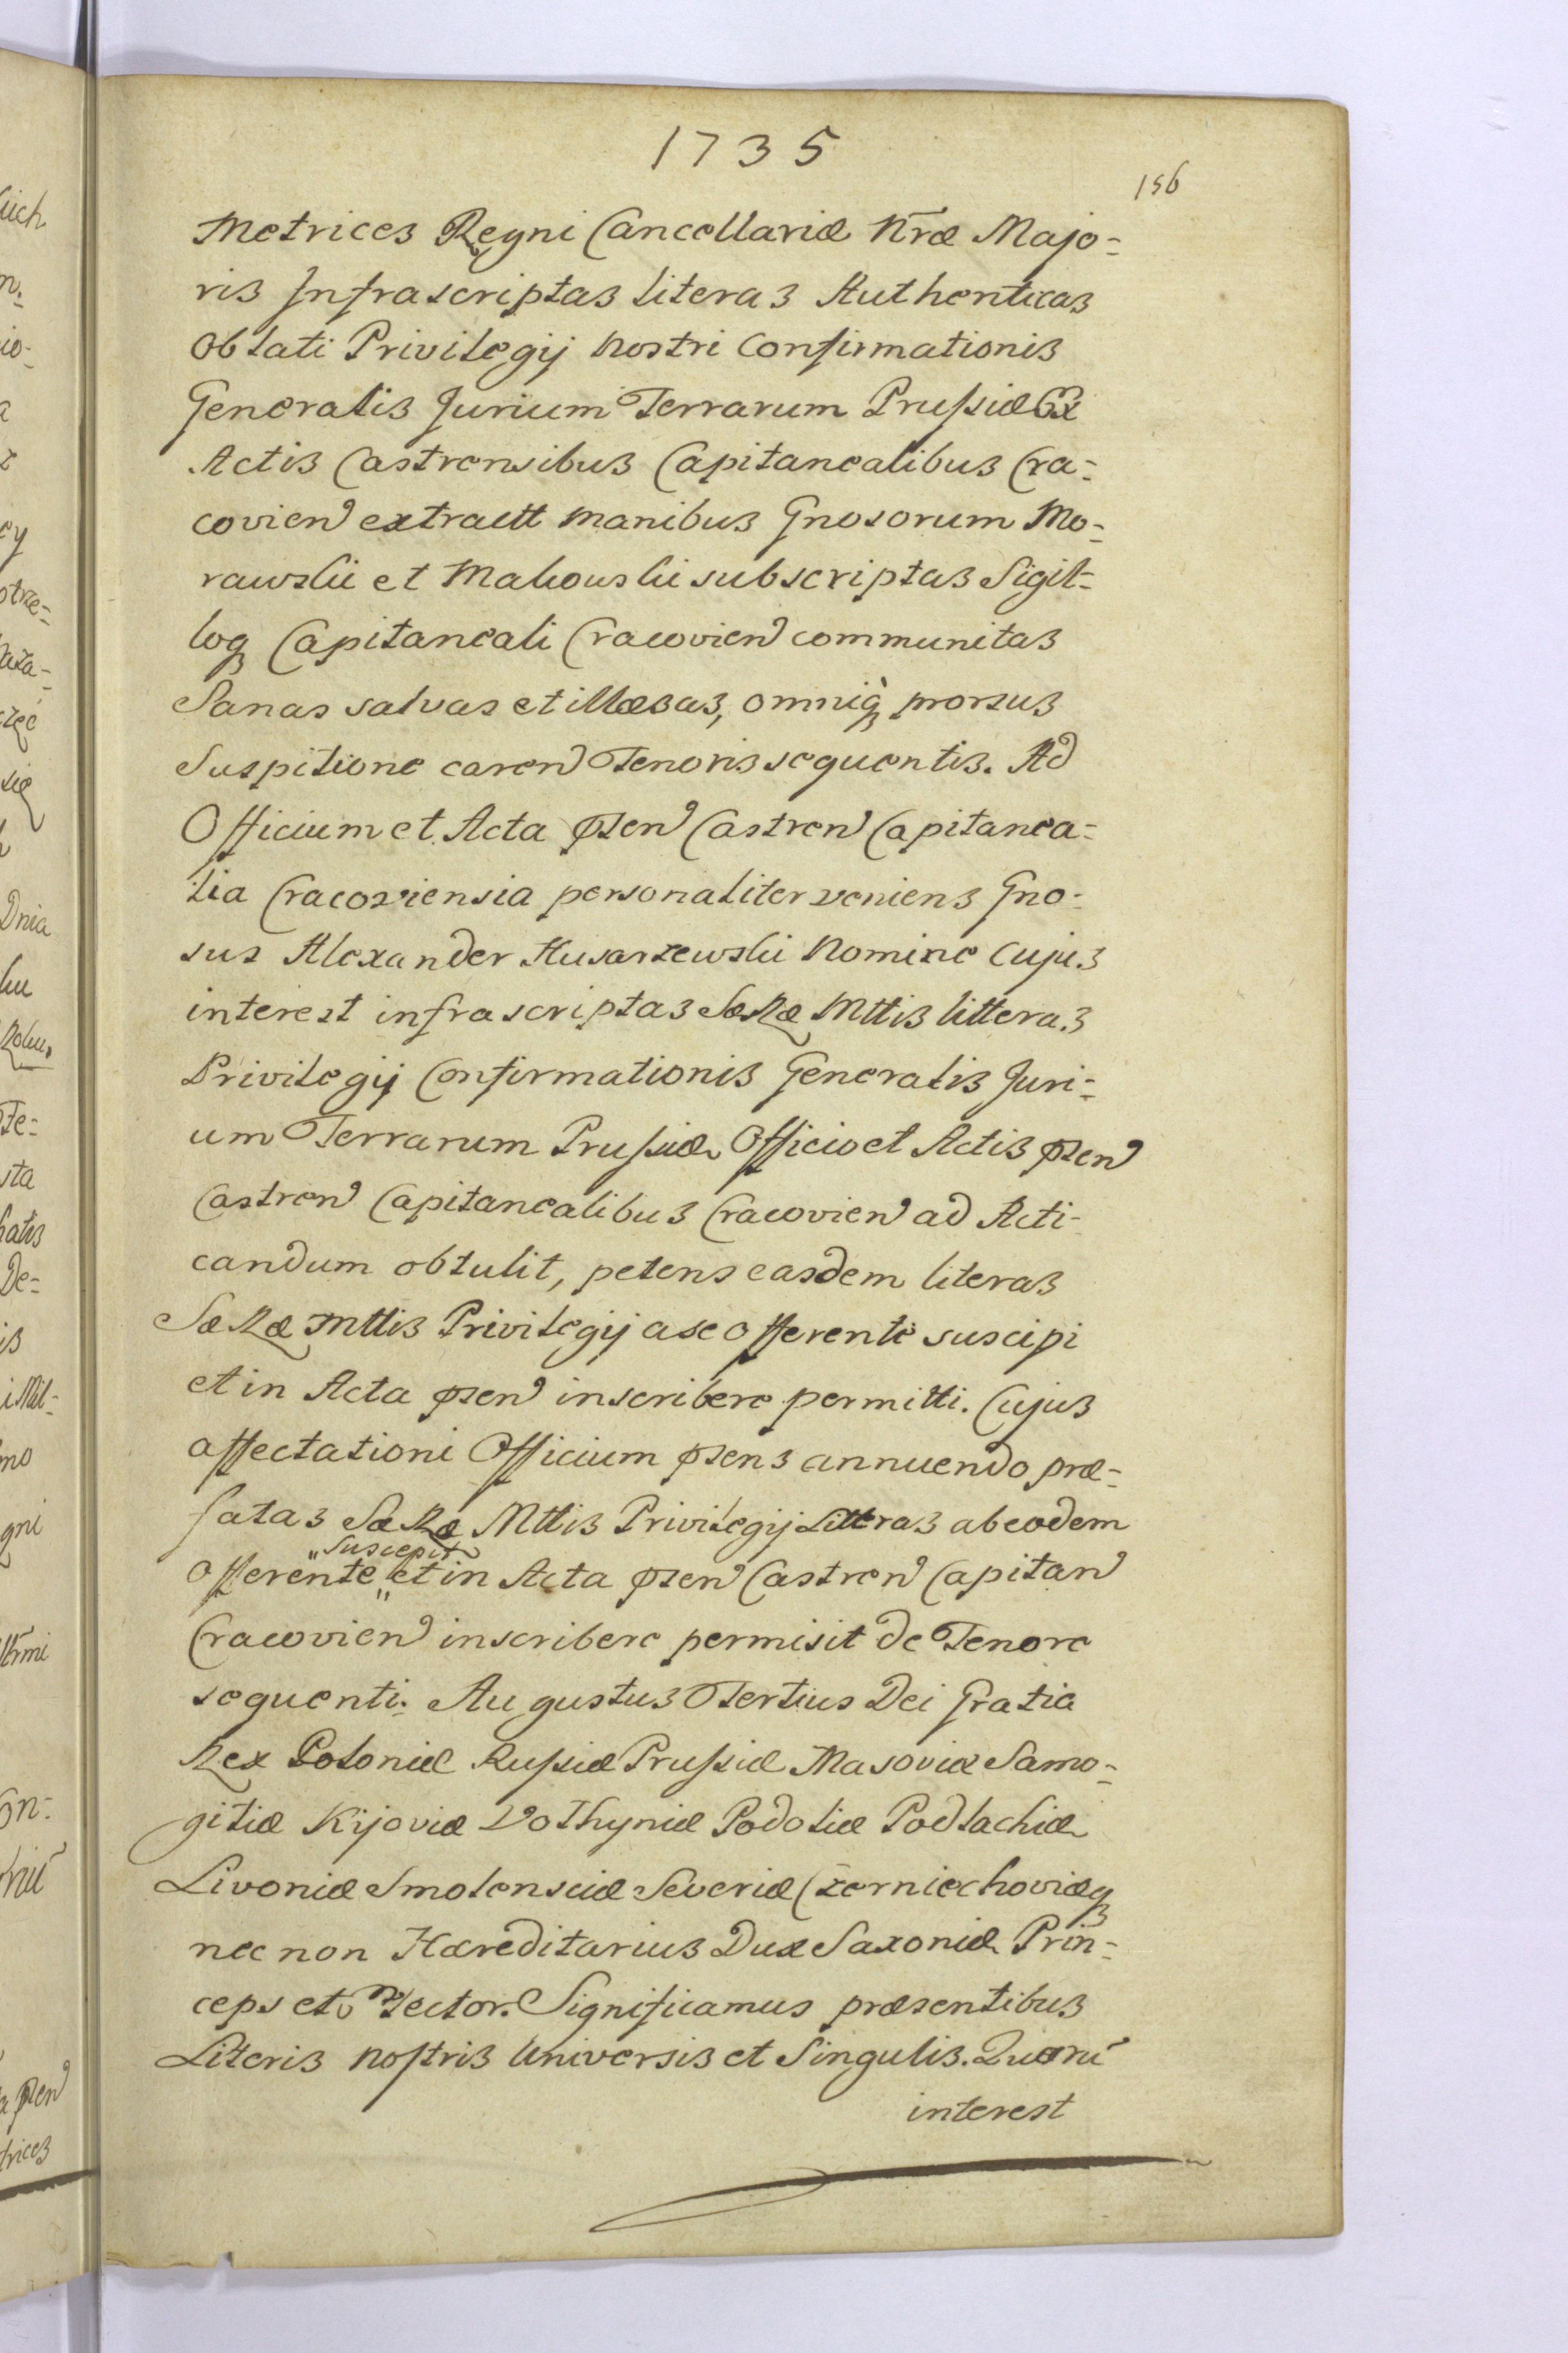 1735
156
Metrices Regni Cancellariæ Nræ Majo=
ris Infrascriptas literas Authenticas
Oblati Privilegij Nostri Confirmationis
Generalis Jurium Terrarum Prussiæ Ex
Actis Castrensibus Capitanealibus Cra=
covien extractt manibus Gnosorum Mo=
rawski et Makowski subscriptas Sigil=
loq Capitaneali Cracovien communitas
Sanas salvas et illæsas, omniq prorsus
Suspitione caren Tenoris sequentis. Ad
Officium et Acta psen Castren Capitanea=
lia Cracoviensia personaliter veniens Gno=
sus Alexander Husarzewski Nomine cujus
interest infrascriptas SæRæ Mttis litteras
Privilegij Confirmationis Generalis Juri=
um Terrarum Prussiæ Officio et Actis psen
Castren Capitanealibus Cracovien ad Acti=
candum obtulit, petens easdem literas
SæRæ Mttis Privilegij a se offerente suscipi
et in Acta psen inscribere permitti. Cujus
affectationi Officium psens annuendo præ=
fatas SæRæ Mttis Privilegij Litteras ab eodem
"Suscepit
Offerente " et in Acta psen Castren Capitan
Cracovien inscribere permisit de Tenore
sequenti. Augustus Tertius Dei Gratia
Rex Poloniæ Russiæ Prussiæ Masoviæ Samo=
gitiæ Kijoviæ Volhyniæ Podoliæ Podlachiæ
Livoniæ Smolensciæ Severiæ Czerniechoviæq
nec non Hæreditarius Dux Saxoniæ Prin=
ceps et Elector. Significamus præsentibus
Literis nostris Universis et Singulis. Quorũ
interest